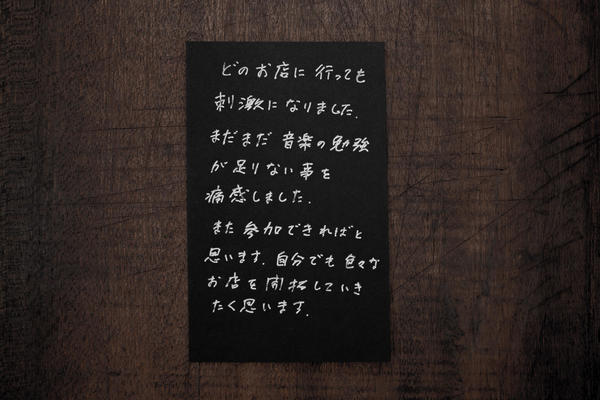 どのお店に行っても
刺激になりました.
まだまだ音楽の勉強
が足りない事を
痛感しました.
また参加できればと
思います.自分でも色々な
お店を開拓していき
たく思います.